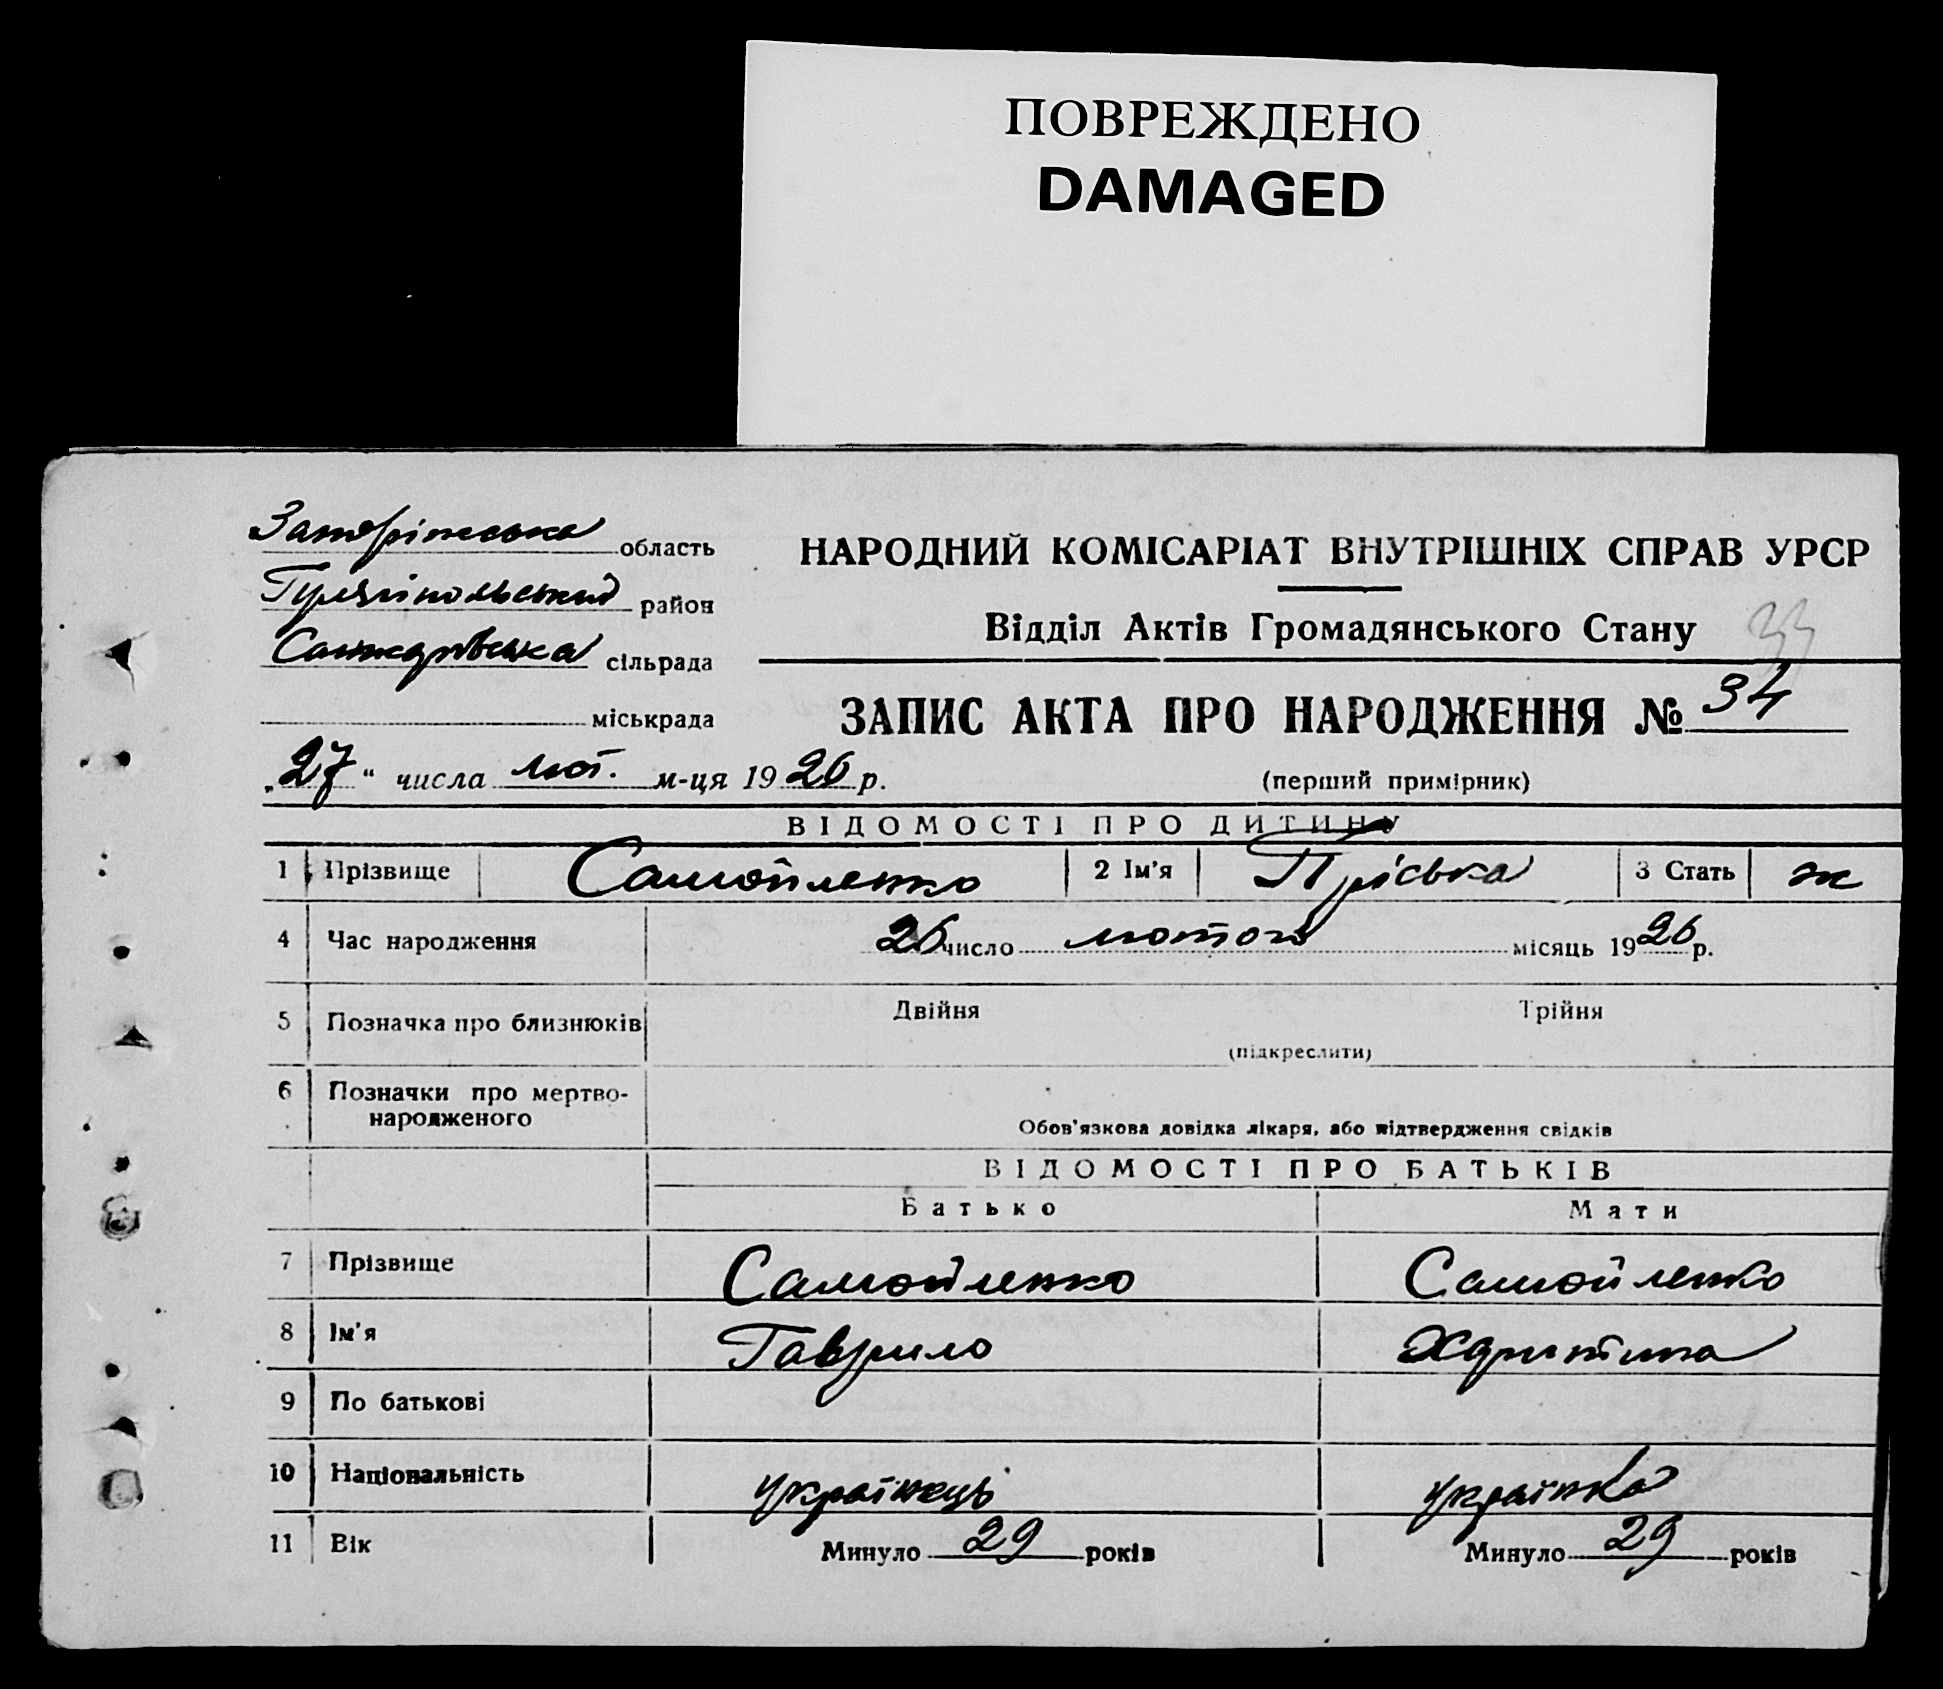 ПОВРЕЖДЕНО
DAMAGED
Запоріжська область
Гуляйпільський район
сільрада
міськрада
НАРОДНИЙ КОМІСАРІАТ ВНУТРІШНІХ СПРАВ УРСР
Відділ Актів Громадянського Стану
33
ЗАПИС АКТА ПРО НАРОДЖЕННЯ № 34
„27“ числа лют. м-ця 1926 р.
(перший примірник)
ВІДОМОСТІ ПРО ДИТИНУ
1 Прізвище Самойленко 2 Ім'я Пріська 3 Стать ж
4 Час народження 26 число лютого місяць 1926 р.
5 Позначка про близнюків Двійня Трійня
(підкреслити)
6 Позначки про мертво-
народженого
Обов'язкова довідка лікаря, або підтвердження свідків
ВІДОМОСТІ ПРО БАТЬКІВ
Батько Мати
7 Прізвище Самойленко Самойленко
8 Ім'я Гаврило Харитина
9 По батькові
10 Національність українець українка
11 Вік Минуло 29 років Минуло 29 років